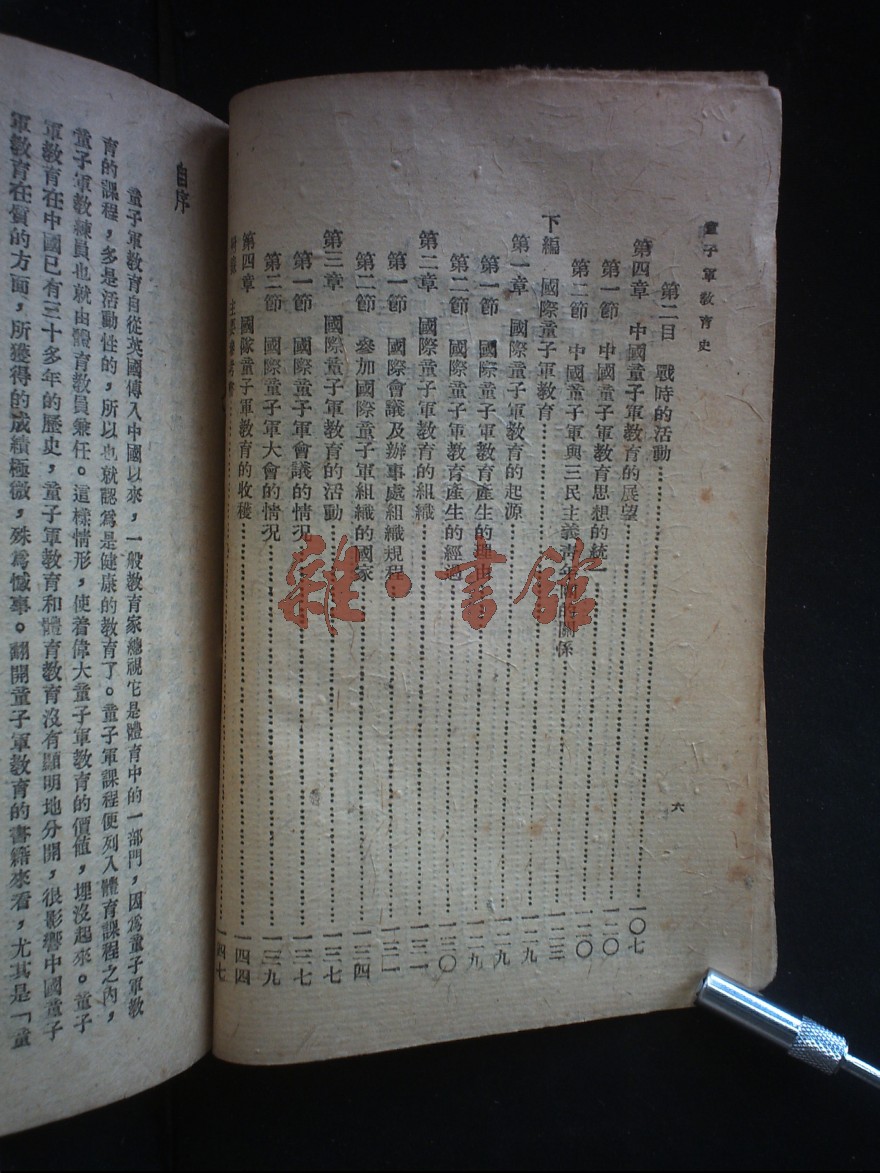 童子軍教育史
六
第二目 戰時的活動 〇七
第四章 中國童子軍教育的展望 一二〇
第一節 中國童子軍教育思想的統一 一二〇
第二節 中國童子軍與三民主義青年團的關係 一二三
下編 國際童子軍教育 一二九
第一章 國際童子軍教育的起源 一二九
第一節 國際童子軍教育產生的理由 一二九
第二節 國際童子軍教育產生的經過 一三〇
第二章 國際童子軍教育的組織 一三一
第一節 國際會議及辦事處組織規程 一三一
第二節 參加國際童子軍組織的國家 一三四
第三章 國際童子軍教育的活動 一三七
第一節 國際童子軍會議的情況 一三七
第二節 國際童子軍大會的情況 一三九
第四章 國際童子軍教育的收穫 一四四
附錄 主要參考書 一四七
自序
童子軍教育自從英國傳入中國以來，一般教育家總視它是體育中的一部門，因爲童子軍教
育的課程，多是活動性的，所以也就認爲是健康的教育了。童子軍課程便列入體育課程之內，
童子軍教練員也就由體育教員兼任。這樣情形，使着偉大童子軍教育的價值，埋沒起來。童子
軍教育在中國已有三十多年的歷史，童子軍教育和體育教育沒有顯明地分開，很影響中國童子
軍教育在質的方面，所獲得的成績極微，殊爲憾事。翻開童子軍教育的書籍來看，尤其是「童
雜·書館